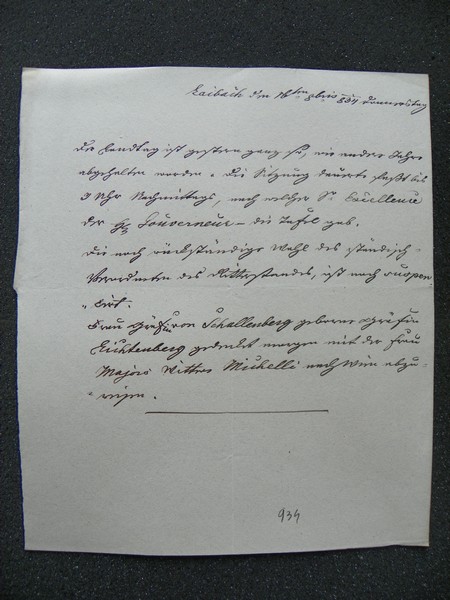 Laibach den 16ten 8bris 834 Donnerstag
Der Landtag ist gestern ganz so, wie andere Jahre
abgehalten worden. Die Sitzung dauerte fast bis
3 Uhr Nachmittags, nach welcher Sr Excellenz
der Hr Gouverneur – die Tafel gab.
Die noch rückständige Wahl des ständisch-
Verordneten des Ritterstandes, ist noch suspen-
„dirt.
Frau Gräfin von Schallenberg geborene Gräfin
Lichtenberg gedenkt morgen mit der Frau
Majors Wittwe Michelli nach Wien abzu-
„reisen.
934